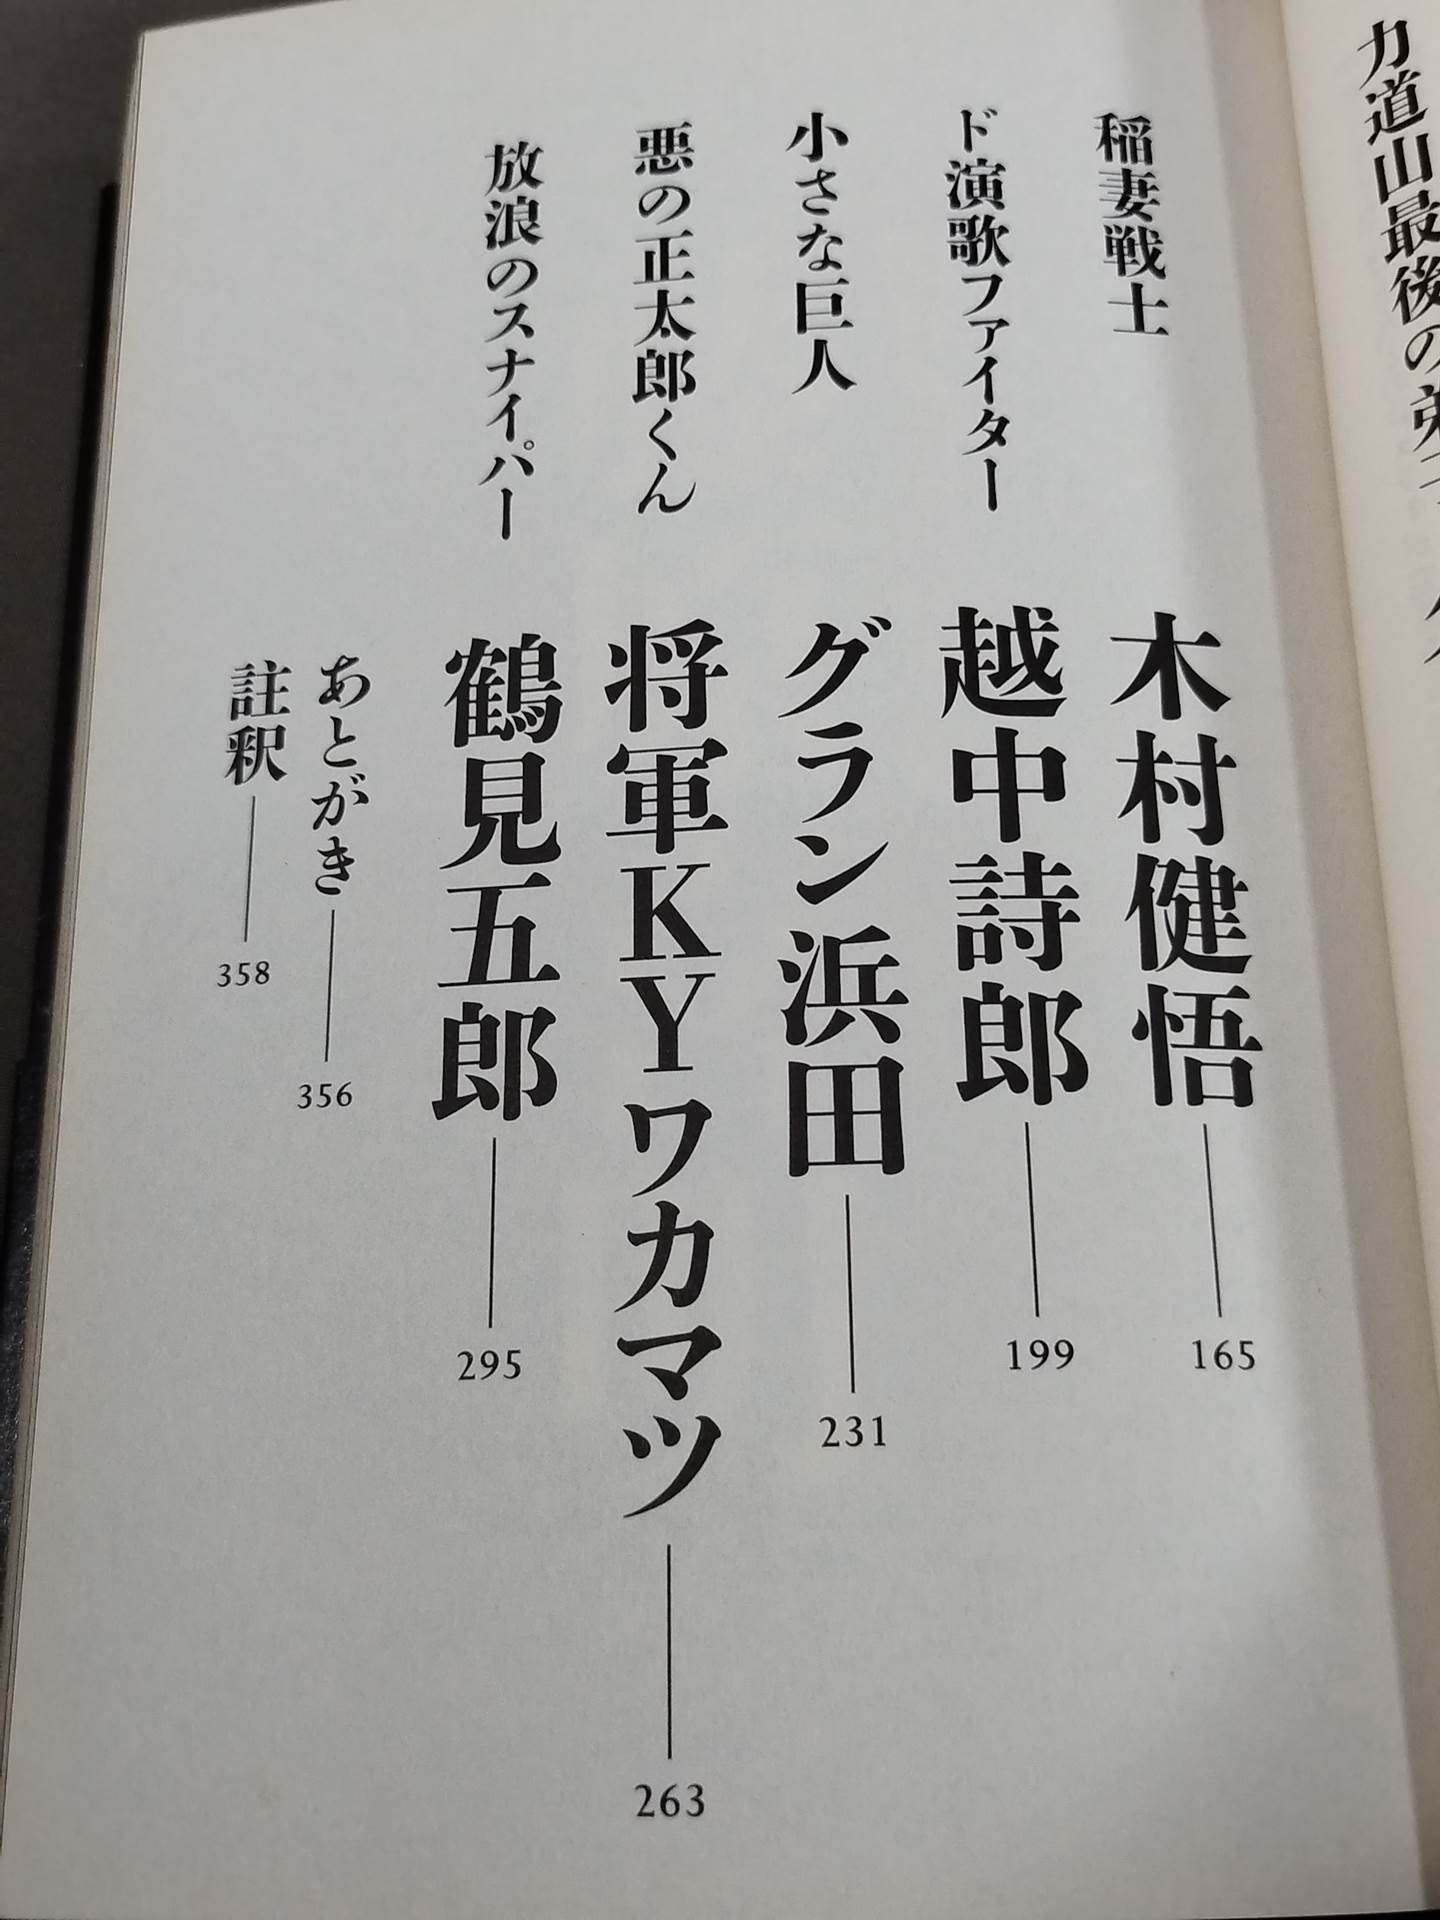 力道山最後の弟子
稲妻戦士 木村健悟 165
ド演歌ファイター 越中詩郎 199
小さな巨人 グラン浜田 231
悪の正太郎くん 将軍KYワカマツ 263
放浪のスナイパー 鶴見五郎 295
あとがき 356
註釈 358